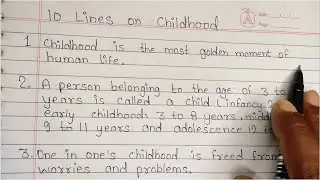 10 Lines on Childhood
1 Childhood is the most golden moment of
human life.
2. A person belonging to the age of 3 to
years is called a child (infancy 2
early childhoods 3 to 8 years, midd
9 to 11 years and adolescence 12 to
3. One in one's childhood is freed from
worries and problems.